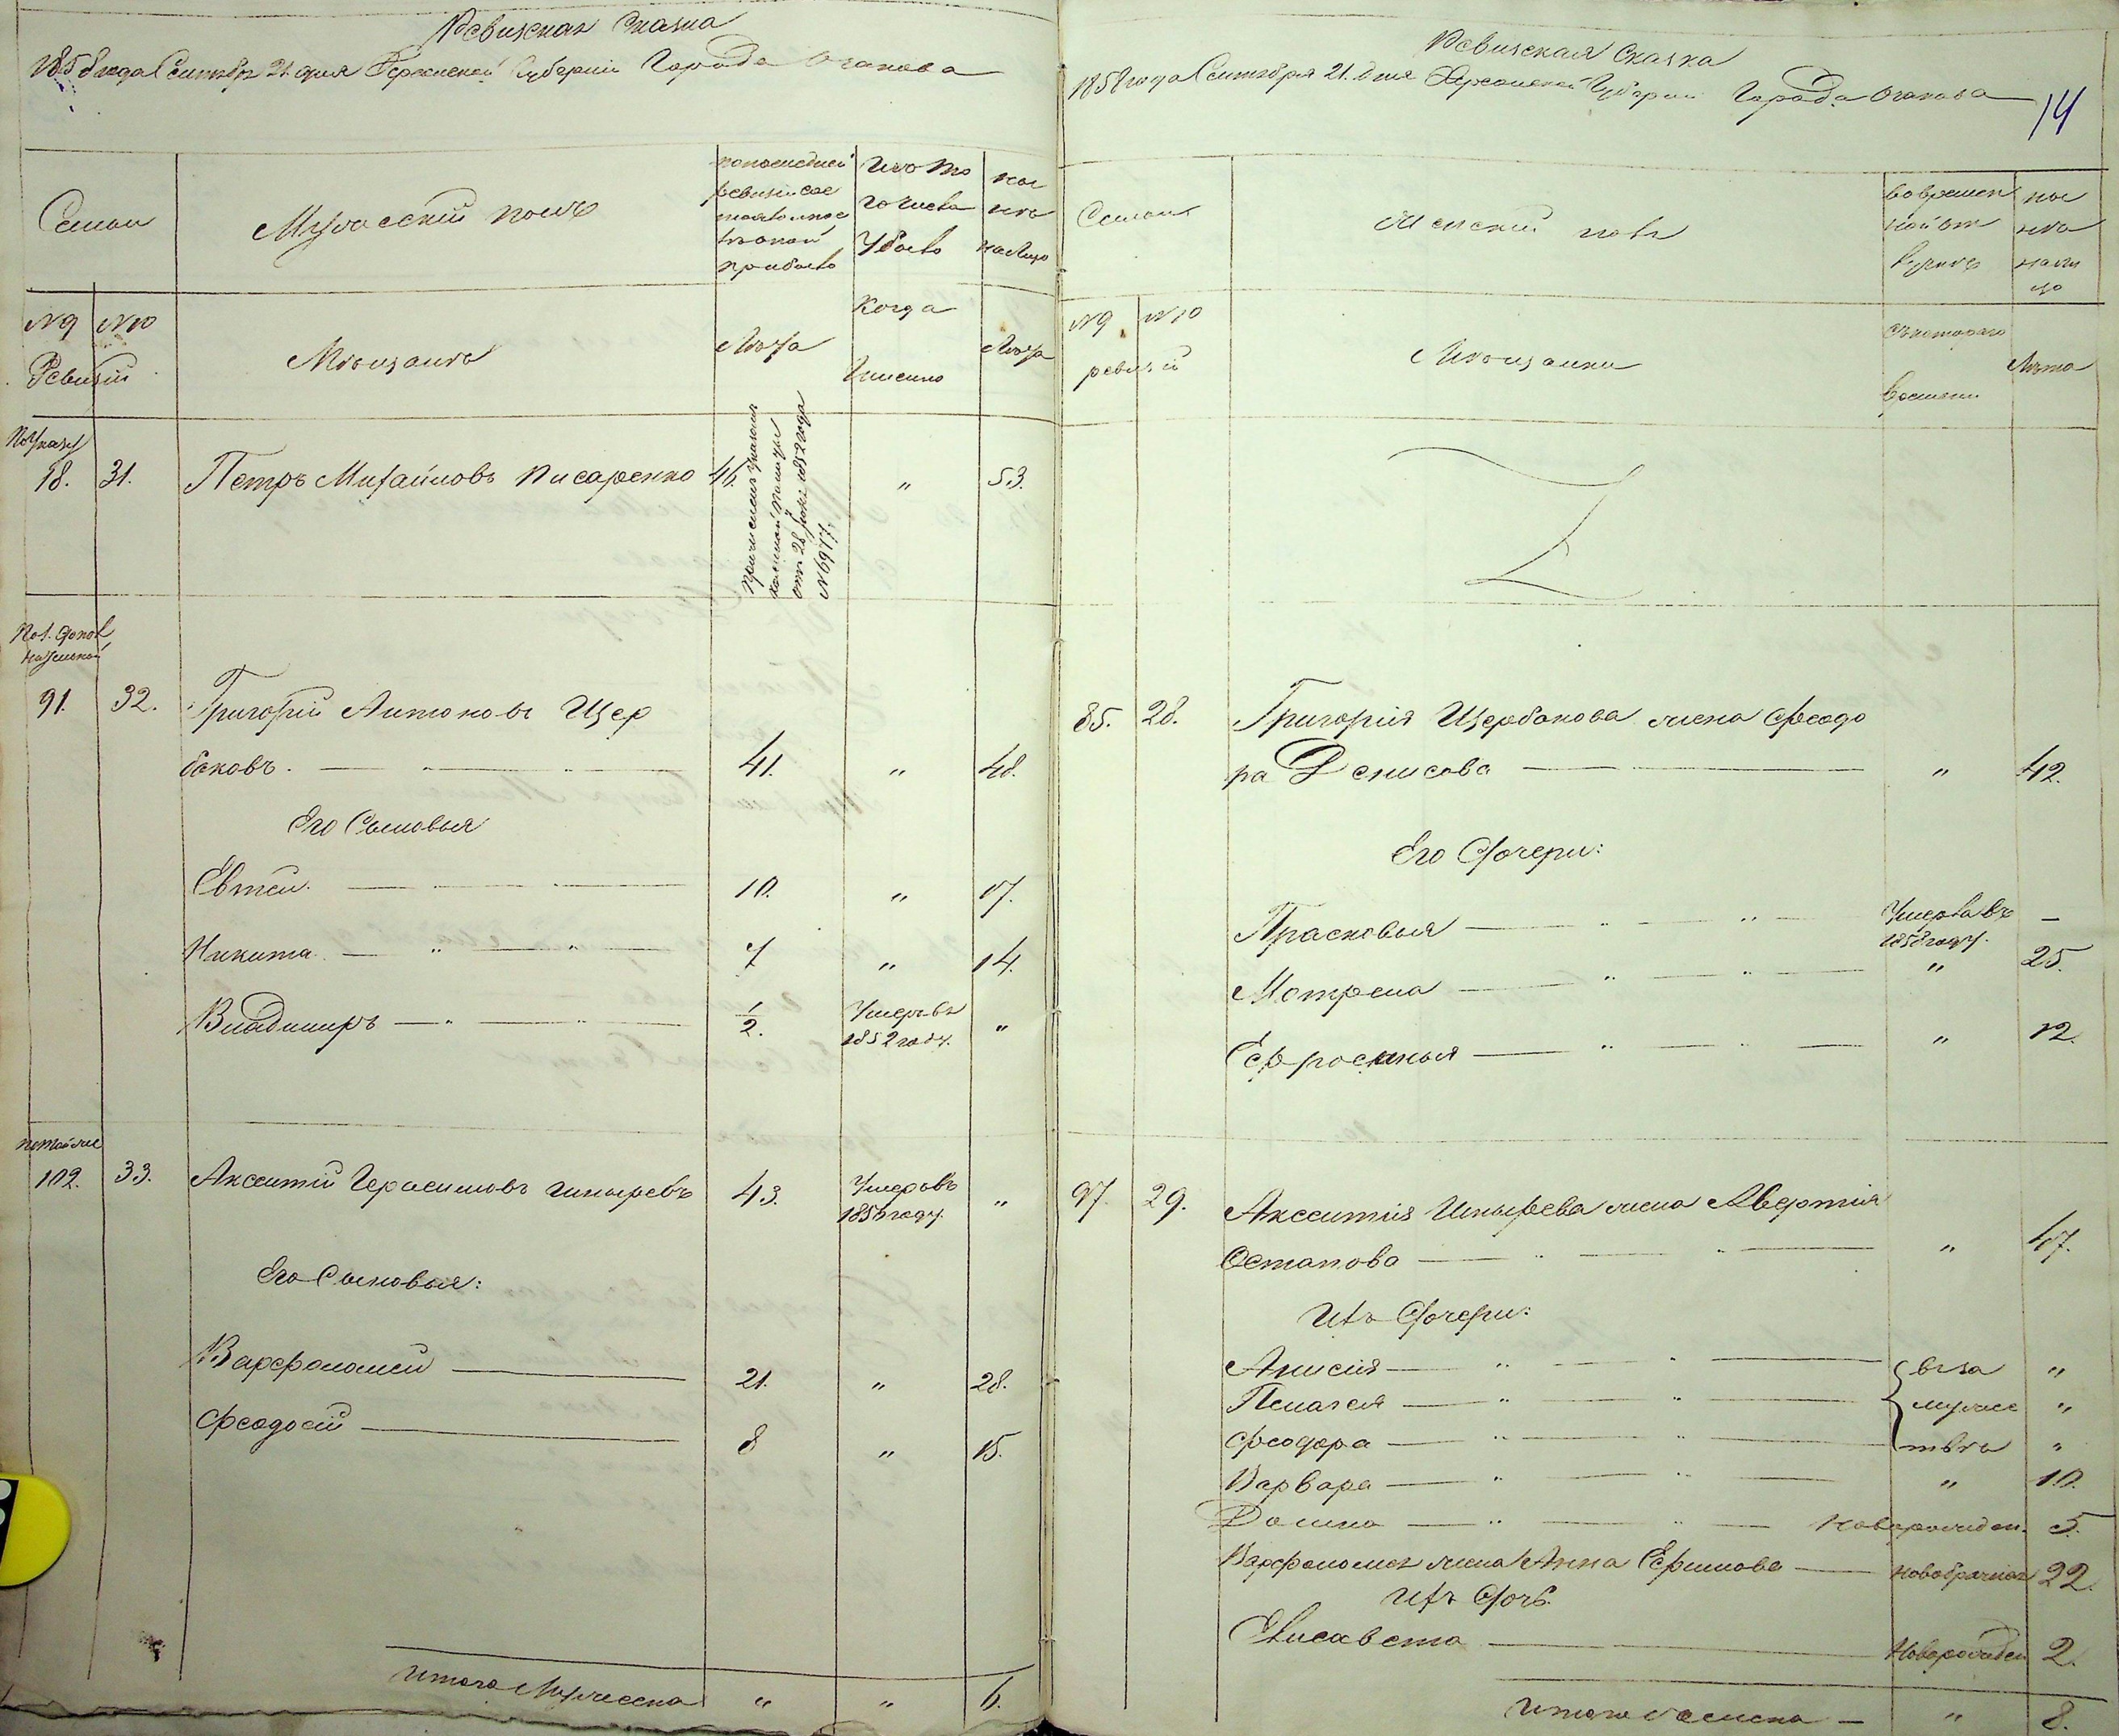 Ревизская Сказка
1858 года Сентября 21 дня Херсонской Губерніи Города Очакова
Семьи
Мужескій полъ
по последней
ревизіи сос
тояло и после
то
прибыло
Изъ то
го числа
убыло
нынѣ
на лицо
№9 №10
Ревизіи
Мѣщанъ
Лѣта
Когда
Именно
Лѣта
По Указу
18. 31. Петръ Михайловъ Писаренко 46. " 53.
Причисленъ Указомъ
Казенной Палаты
отъ 28 1852 года
№6977.
По 1. допол
нительной
91. 32. Григорій Антоновъ Щер
баковъ. 41. " 48.
Его Сыновья
Евтей. 10. " 17.
Никита 7 " 14.
Владимиръ 1/2. Умеръ въ 1852 году. "
по той же
102. 33. Аксентій Герасимовъ Шныревъ 43. Умеръ въ 1856 году. "
Его Сыновья:
Варфоломей 21. " 28.
Феодосій 8 " 15.
Итого Мужеска " " 6.
Ревизская Сказка
1858 года Сентября 21. дня Херсонской Губерніи Города Очакова
14
Семьи
Женскій полъ
во времен
ной от
лучкѣ
нынѣ
на ли
цо
№9 №10
ревизій
Мѣщанки
съ котораго
времени
Лѣта
85. 28. Григорія Щербакова жена Феодо
ра Денисова " 42.
Его Дочери:
Прасковья Умерла въ 1858 году. –
Мотрена " 25.
Ефросинья " 12.
97. 29. Аксентія Шнырева жена Авдотія
Остапова " 47.
Ихъ Дочери:
Анисія въ за "
Пелагея муже "
Феодора ствѣ "
Варвара " 10.
Домна Новорожден. 5.
Варфоломея жена Анна Ефимова новобрачная 22.
Ихъ Дочь
Елисавета Новорожден 2.
Итого Женска – " 8.